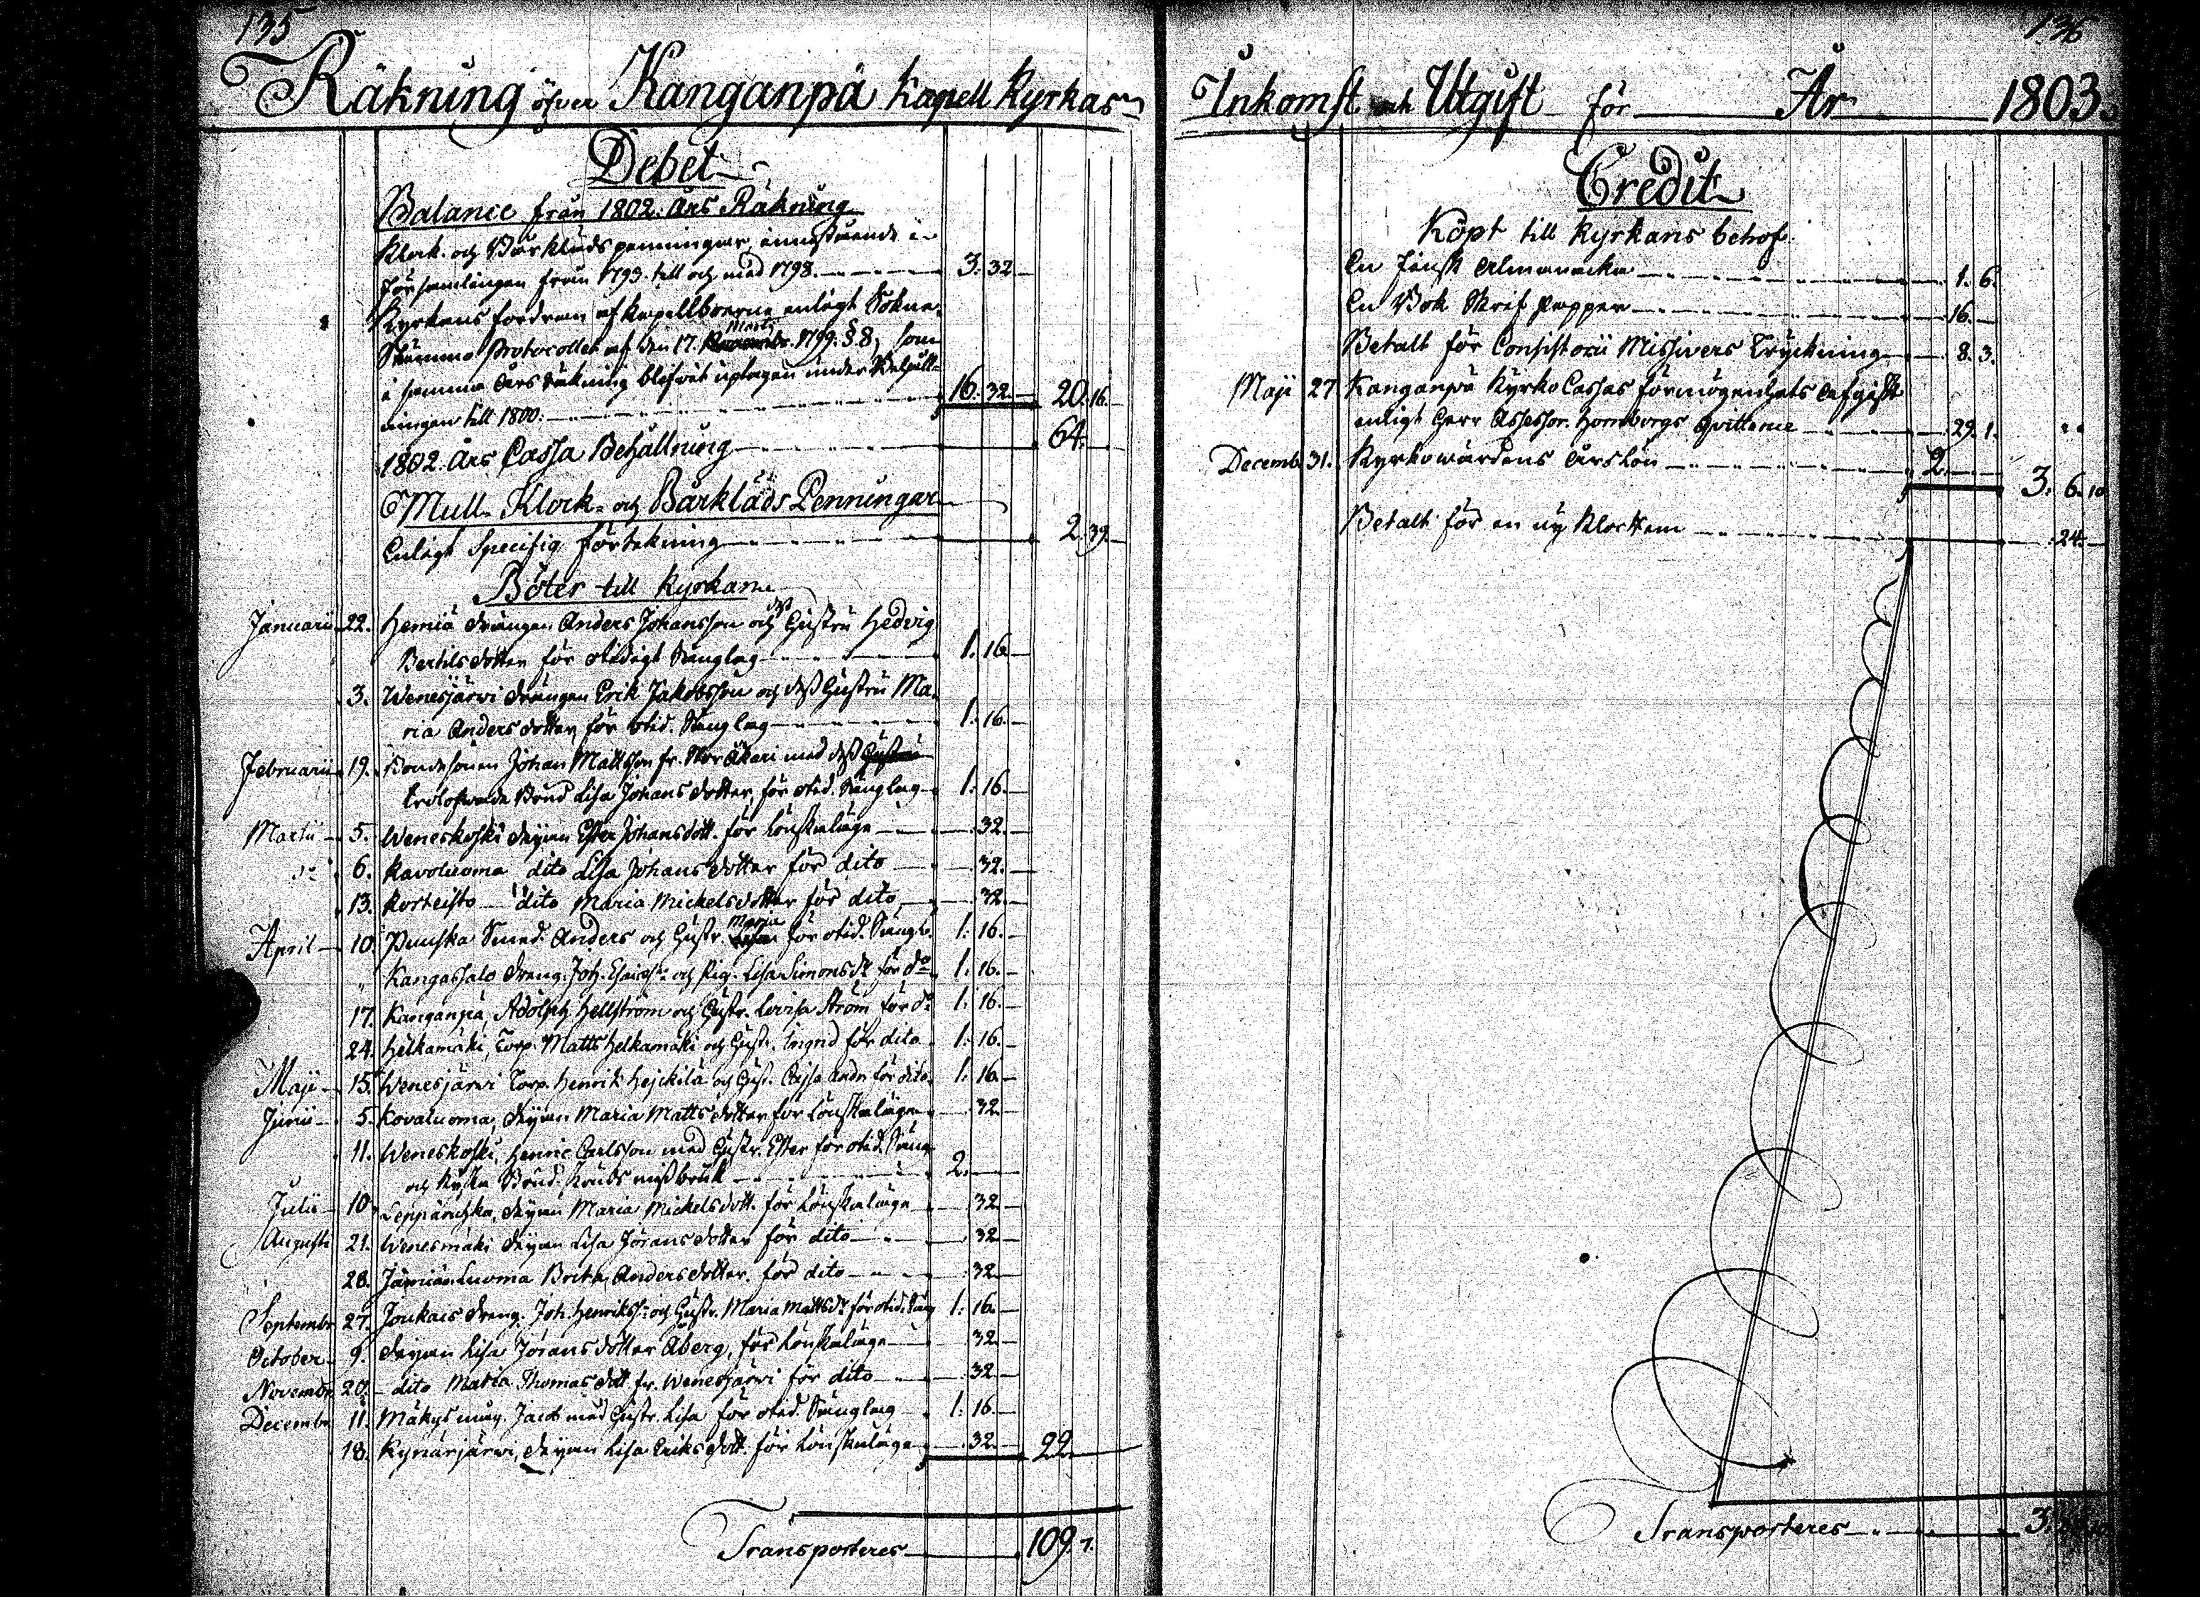 135
Räkning öfver Kanganpä Kapell Kyrkas
Debet
Balance från 1802. års Räkning
Klock- och Bårklädspenningar, innestående i
församlingen från 1793. till och med 1798. 3. 32.
Kyrkans fordran af Kapellboerne enligt Sokne-
Stämmo Protocollet af den 17. Martii 1799. §. 8, som
i samma års räkning blifvit uptagen under
ningen till 1800. 16. 32. 20. 16.
1802. års Cassa Behållning 64.
Mull- Klock- och Bårkläds Penningar
Enligt Specifiq förtekning 2. 39.
Böter till Kyrkan
Januarii 22. Hemiä drängen Anders Johansson och dess Hustru Hedvig
Bertilsdotter för otidigt Sänglag 1. 16.
3. Wenesjärvi drängen Erik Jakobsson och dess Hustru Ma-
ria Andersdotter, för otid. Sänglag 1. 16.
Februarii 19. Bondesonen Johan Mattsson fr. med dess
trolofwade Brud Lisa Johansdotter, för otid. Sänglag 1. 16.
Martii 5. Weneskoski Pigan Ester Johansdott. för Lönskaläge 32.
6. Kavoluoma dito Lisa Johansdotter för dito 32.
13. Korteisto dito Maria Mickelsdotter för dito 32.
April 10. Smed. Anders och Hustr. Maria för otid. Sängl. 1. 16.
Kangassalo dräng. Joh. och Pig. Lisa Simonsdr för do 1. 16.
17. Kanganpä, Adolph Hellström och Hustr. Lovisa Ström för do 1. 16.
24. Helkamäki, Torp. Matts Helkamäki och Hustr. Ingrid för dito 1. 16.
Maji 15. Wenesjärvi Torp. Henrik Hejckilä och Hust. Cajsa Andr. för dito 1. 16.
Junii 5. Kovaluoma, Pigan Maria Mattsdotter för Lönskaläge 32.
11. Weneskoski, Henric Carlsson med Hustr. Ester för otid. Säng
och Kyska Brud. missbruk 2.
Julii 10. Pigan Maria Mickelsdott. för Lönskaläge 32.
Augusti 21. Wenesmäki Pigan Lisa Jöransdotter för dito 32.
28. Brita Andersdotter för dito 32.
Septembr 27. Joukais dräng. Joh. Henrikss. och Hustr. Maria Mattsdr för otid. Säng 1. 16.
October 9. Pigan Lisa Jöransdotter Åberg, för Lönskaläge 32.
Novembr 20. dito Maria Thomasdott. fr. Wenesjärvi för dito 32.
Decembr 11. Jacob med Hustr. Lisa för otid. Sänglag 1. 16.
18. Kynärjärvi, Pigan Lisa Eriksdott. för Lönskaläge 32. 22.
Transporteres 109. 7.
136
Inkomst och Utgift för År 1803.
Credit
Köpt till Kyrkans behof.
En finsk Almanacka 1. 6.
En Bok Skrif papper 16.
Betalt för Consistorii Missivers Tryckning 8. 3.
Maji 27 Kanganpä Kyrko Cassas förmögenhets Afgift
enligt Herr Assessor Hornborgs qvittence 29. 1.
Decemb 31. Kyrkowärdens årslön 2. 3. 6. 10
Betalt för en ny Klockem 24.
Transporteres 3.